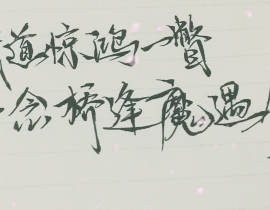 道惊鸿一瞥
念桥逢魔遇